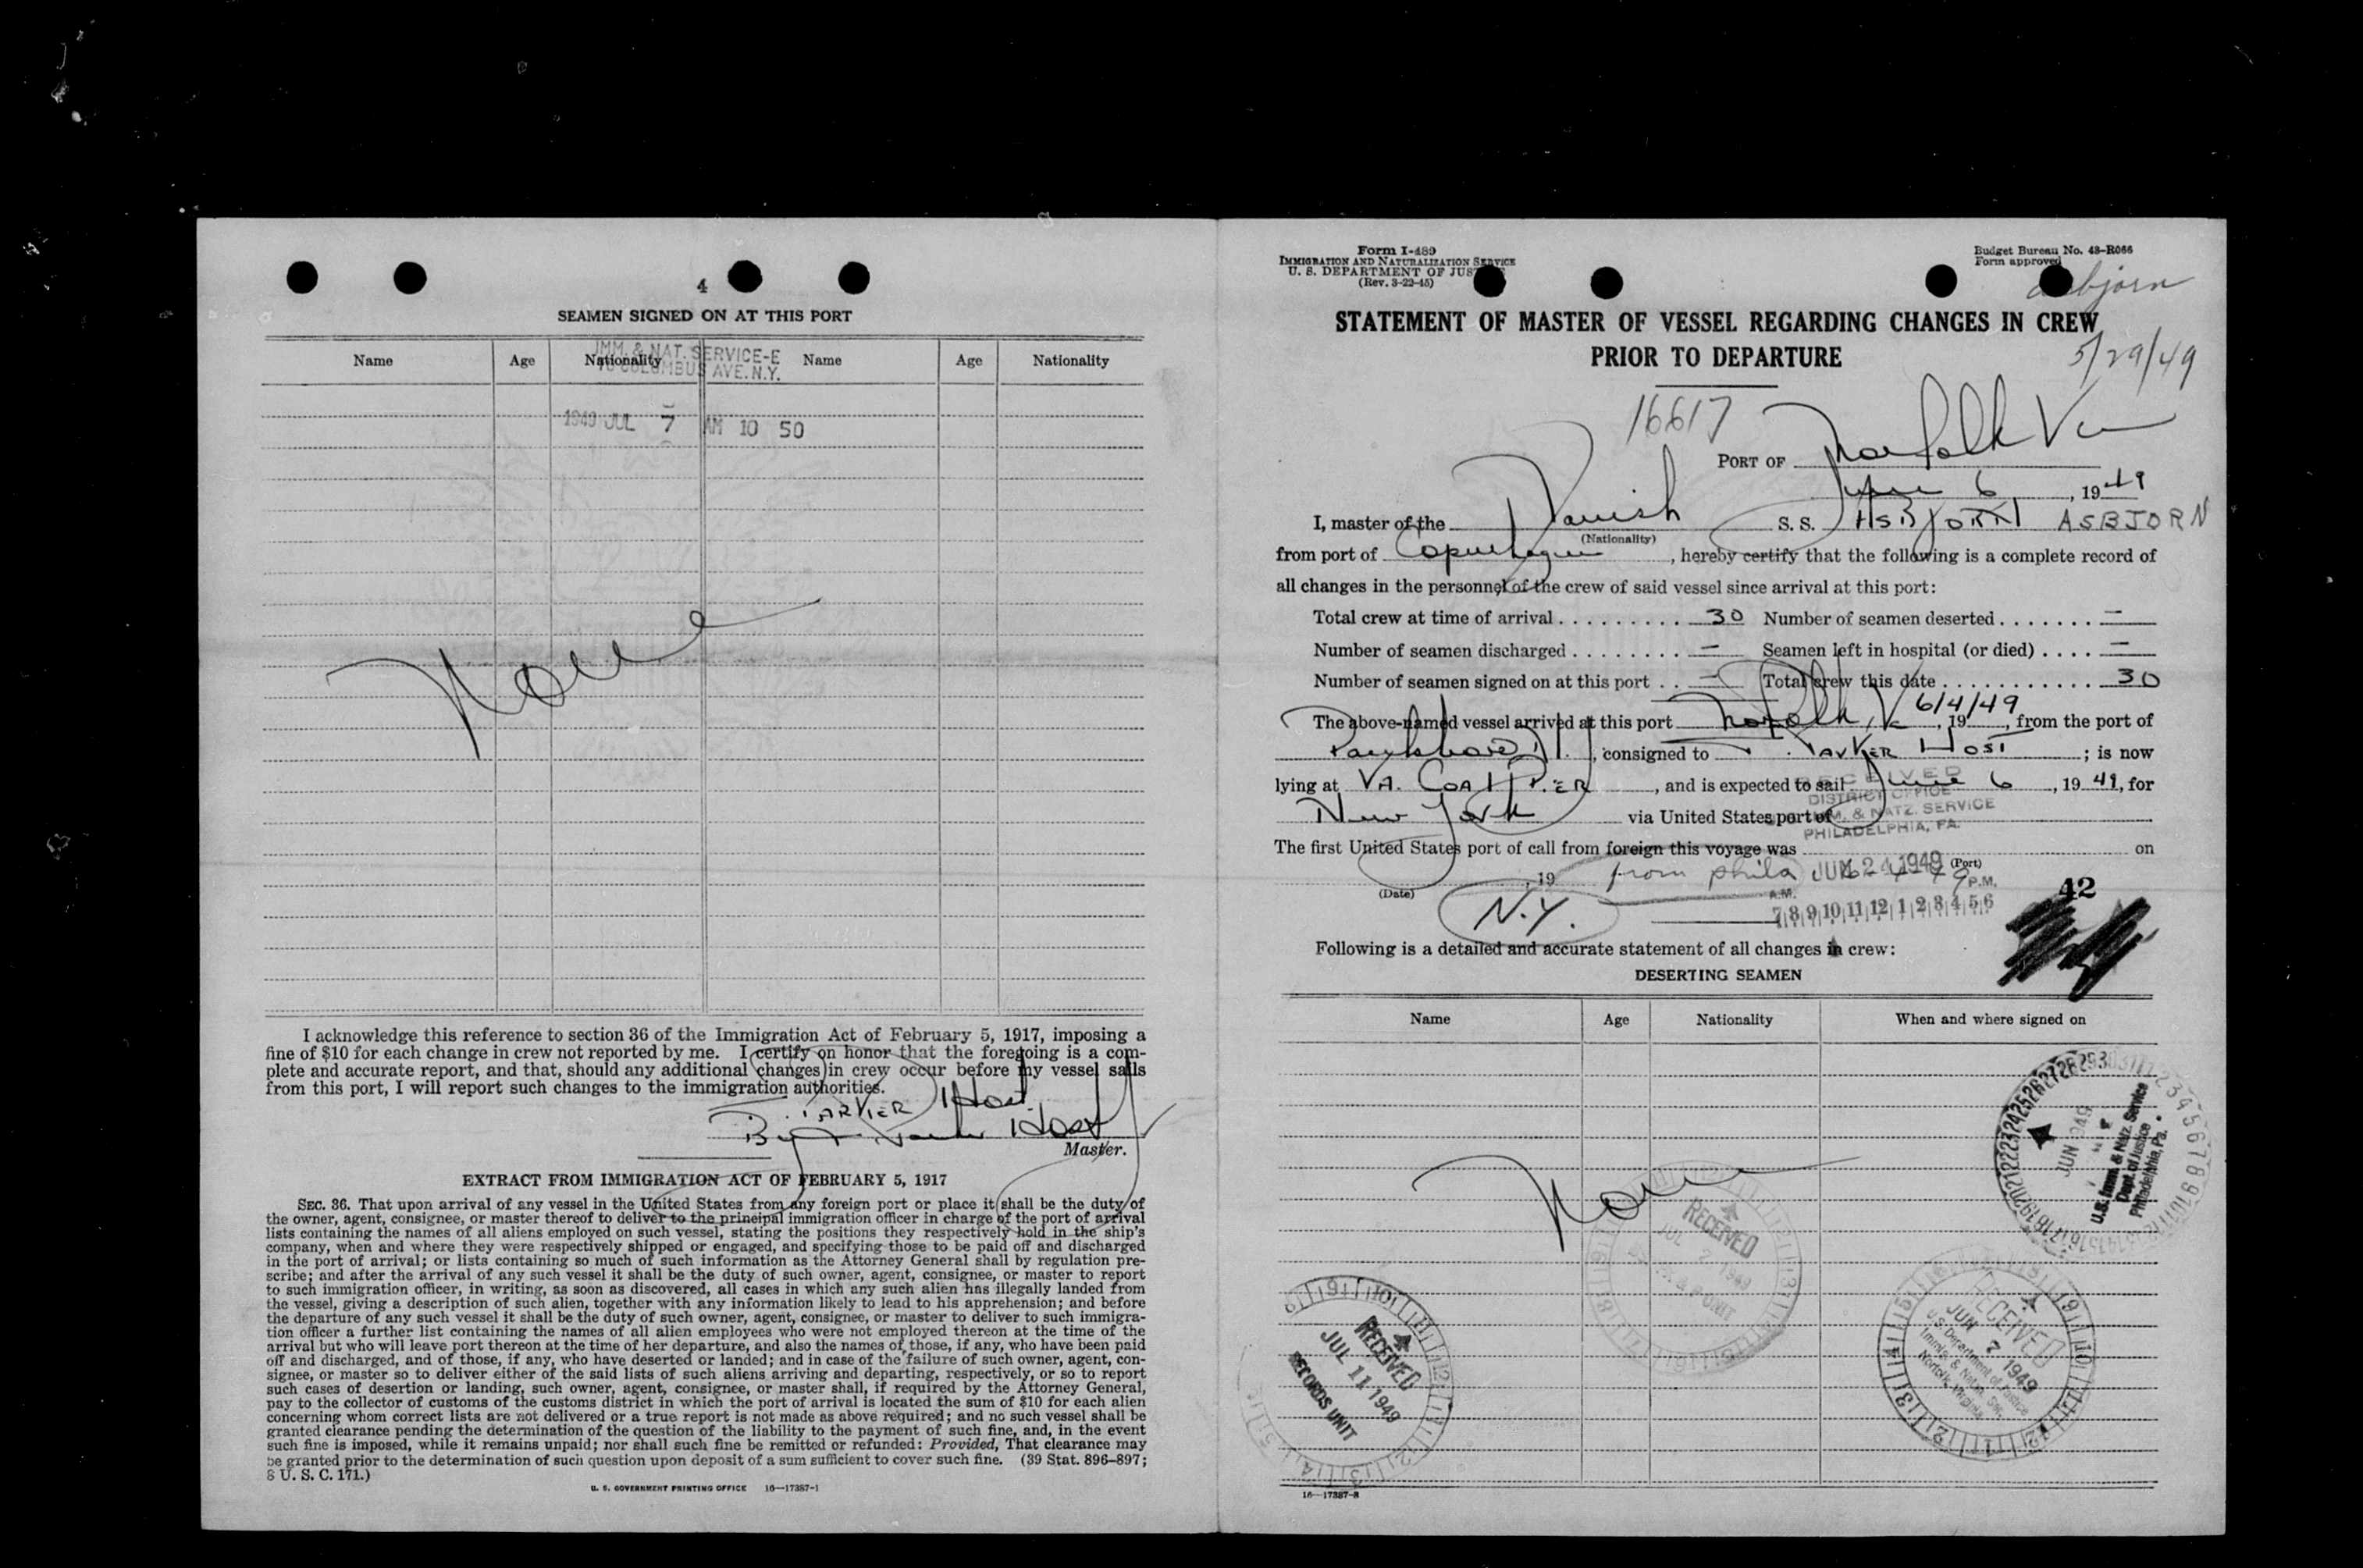 4
SEAMEN SIGNED ON AT THIS PORT
Name Age Nationality Name Age Nationality
IMM. & NAT. SERVICE-E
70 COLUMBUS AVE. N.Y.
1949 JUL 7 AM 10 50
None
I acknowledge this reference to section 36 of the Immigration Act of February 5, 1917, imposing a
fine of $10 for each change in crew not reported by me. I certify on honor that the foregoing is a com-
plete and accurate report, and that, should any additional changes in crew occur before my vessel sails
from this port, I will report such changes to the immigration authorities.
PARKER Host
By Host
Master.
EXTRACT FROM IMMIGRATION ACT OF FEBRUARY 5, 1917
SEC. 36. That upon arrival of any vessel in the United States from any foreign port or place it shall be the duty of
the owner, agent, consignee, or master thereof to deliver to the principal immigration officer in charge of the port of arrival
lists containing the names of all aliens employed on such vessel, stating the positions they respectively hold in the ship's
company, when and where they were respectively shipped or engaged, and specifying those to be paid off and discharged
in the port of arrival; or lists containing so much of such information as the Attorney General shall by regulation pre-
scribe; and after the arrival of any such vessel it shall be the duty of such owner, agent, consignee, or master to report
to such immigration officer, in writing, as soon as discovered, all cases in which any such alien has illegally landed from
the vessel, giving a description of such alien, together with any information likely to lead to his apprehension; and before
the departure of any such vessel it shall be the duty of such owner, agent, consignee, or master to deliver to such immigra-
tion officer a further list containing the names of all alien employees who were not employed thereon at the time of the
arrival but who will leave port thereon at the time of her departure, and also the names of those, if any, who have been paid
off and discharged, and of those, if any, who have deserted or landed; and in case of the failure of such owner, agent, con-
signee, or master so to deliver either of the said lists of such aliens arriving and departing, respectively, or so to report
such cases of desertion or landing, such owner, agent, consignee, or master shall, if required by the Attorney General,
pay to the collector of customs of the customs district in which the port of arrival is located the sum of $10 for each alien
concerning whom correct lists are not delivered or a true report is not made as above required; and no such vessel shall be
granted clearance pending the determination of the question of the liability to the payment of such fine, and, in the event
such fine is imposed, while it remains unpaid; nor shall such fine be remitted or refunded: Provided, That clearance may
be granted prior to the determination of such question upon deposit of a sum sufficient to cover such fine. (39 Stat. 896–897;
8 U. S. C. 171.)
U. S. GOVERNMENT PRINTING OFFICE 16—17387-1
Form I-489
IMMIGRATION AND NATURALIZATION SERVICE
U. S. DEPARTMENT OF JUSTICE
(Rev. 3-22-45)
Budget Bureau No. 43-R066
Form approved
Asbjorn
STATEMENT OF MASTER OF VESSEL REGARDING CHANGES IN CREW
PRIOR TO DEPARTURE
5/29/49
16617
PORT OF Norfolk Va
June 6, 1949
I, master of the Danish S. S. ASBJORN ASBJORN
(Nationality)
from port of Copenhagen, hereby certify that the following is a complete record of
all changes in the personnel of the crew of said vessel since arrival at this port:
Total crew at time of arrival . . . . . . . . . 30 Number of seamen deserted . . . . . . . –
Number of seamen discharged . . . . . . . . – Seamen left in hospital (or died) . . . . –
Number of seamen signed on at this port . . – Total crew this date . . . . . . . . . . . 30
The above-named vessel arrived at this port Norfolk, Va 6/4/49, 19, from the port of
, consigned to T. PARKER HOST; is now
lying at VA. COAL PIER, and is expected to sail June 6, 1949, for
New York via United States port of
RECEIVED
DISTRICT OFFICE
IMM. & NATZ. SERVICE
PHILADELPHIA, PA.
The first United States port of call from foreign this voyage was on
, 19 from phila JUN 24 1949 (Port)
(Date)
N.Y.
A.M. P.M.
7 8 9 10 11 12 1 2 3 4 5 6
42
Following is a detailed and accurate statement of all changes in crew:
DESERTING SEAMEN
Name Age Nationality When and where signed on
JUN 1949
U.S. Imm. & Natz. Service
Dept. of Justice
Philadelphia, Pa.
None
RECEIVED
JUL 2 1949
RECEIVED
JUN 7 1949
U.S. Department of Justice
Immig. & Natzn. Sv.
Norfolk, Virginia
RECEIVED
JUL 11 1949
RECORDS UNIT
16—17387-2